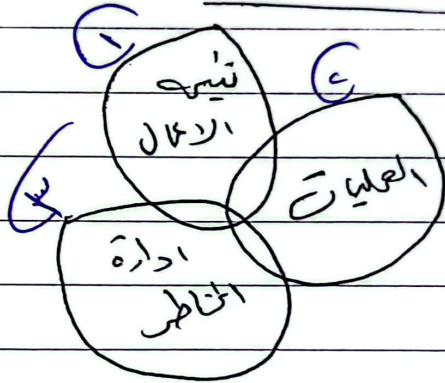 ١
الاعمال
٢
العمليات
٣
ادارة
المخاطر